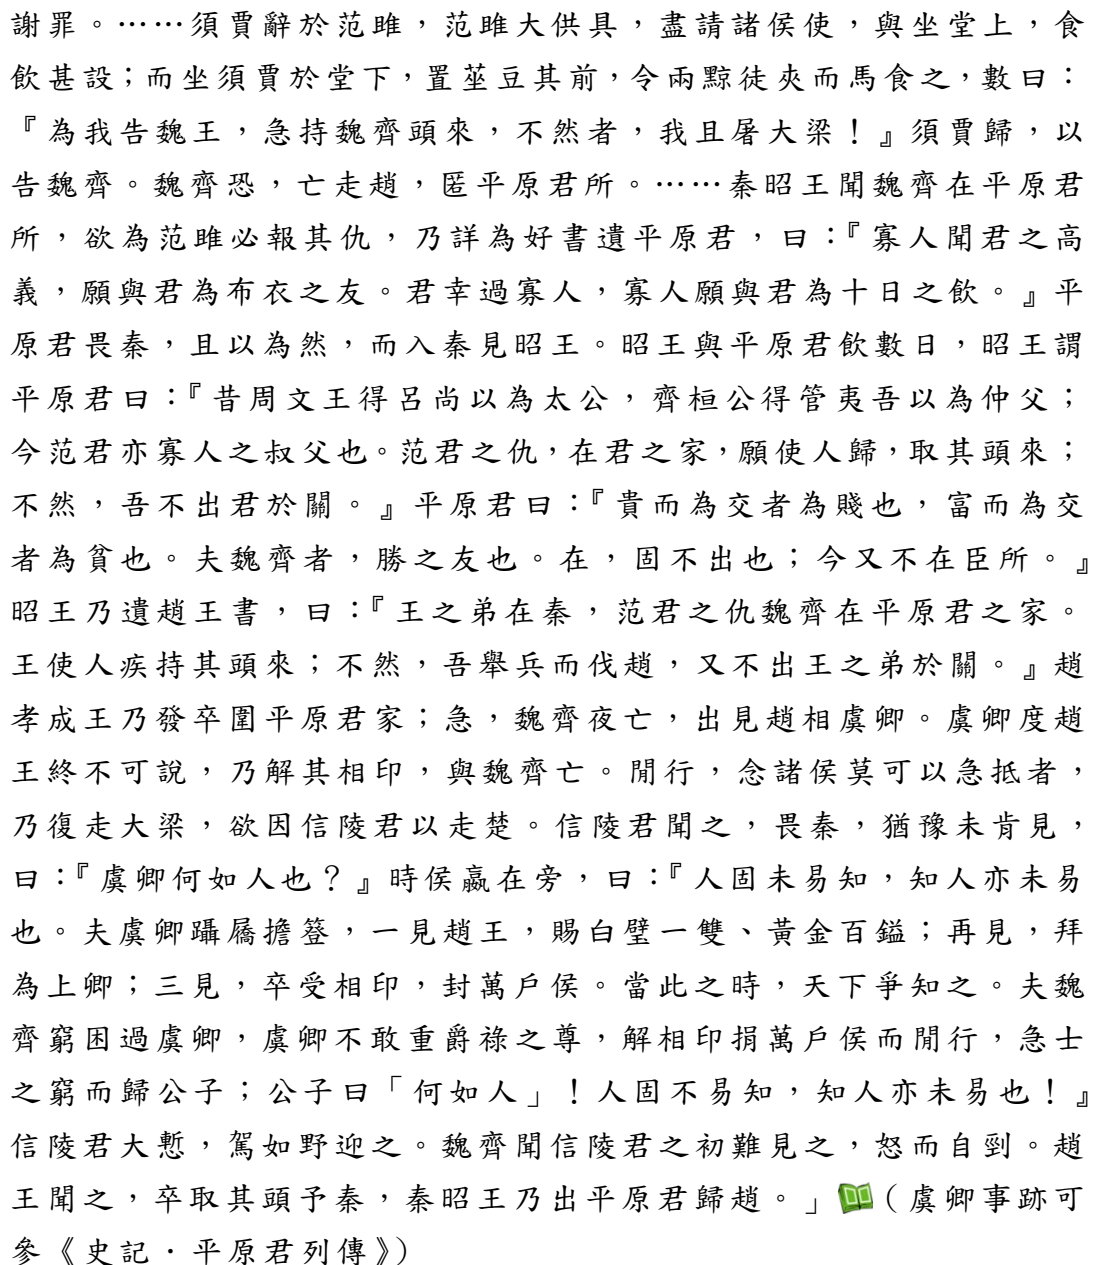 謝罪。……須賈辭於范雎，范雎大供具，盡請諸侯使，與坐堂上，食
飲甚設；而坐須賈於堂下，置莝豆其前，令兩黥徒夾而馬食之，數曰：
『為我告魏王，急持魏齊頭來，不然者，我且屠大梁！』須賈歸，以
告魏齊。魏齊恐，亡走趙，匿平原君所。……秦昭王聞魏齊在平原君
所，欲為范雎必報其仇，乃詳為好書遺平原君，曰：『寡人聞君之高
義，願與君為布衣之友。君幸過寡人，寡人願與君為十日之飲。』平
原君畏秦，且以為然，而入秦見昭王。昭王與平原君飲數日，昭王謂
平原君曰：『昔周文王得呂尚以為太公，齊桓公得管夷吾以為仲父；
今范君亦寡人之叔父也。范君之仇，在君之家，願使人歸，取其頭來；
不然，吾不出君於關。』平原君曰：『貴而為交者為賤也，富而為交
者為貧也。夫魏齊者，勝之友也。在，固不出也；今又不在臣所。』
昭王乃遺趙王書，曰：『王之弟在秦，范君之仇魏齊在平原君之家。
王使人疾持其頭來；不然，吾舉兵而伐趙，又不出王之弟於關。』趙
孝成王乃發卒圍平原君家；急，魏齊夜亡，出見趙相虞卿。虞卿度趙
王終不可說，乃解其相印，與魏齊亡。閒行，念諸侯莫可以急抵者，
乃復走大梁，欲因信陵君以走楚。信陵君聞之，畏秦，猶豫未肯見，
曰：『虞卿何如人也？』時侯嬴在旁，曰：『人固未易知，知人亦未易
也。夫虞卿躡屩擔簦，一見趙王，賜白璧一雙、黃金百鎰；再見，拜
為上卿；三見，卒受相印，封萬戶侯。當此之時，天下爭知之。夫魏
齊窮困過虞卿，虞卿不敢重爵祿之尊，解相印捐萬戶侯而閒行，急士
之窮而歸公子；公子曰「何如人」！人固不易知，知人亦未易也！』
信陵君大慙，駕如野迎之。魏齊聞信陵君之初難見之，怒而自剄。趙
王聞之，卒取其頭予秦，秦昭王乃出平原君歸趙。」（虞卿事跡可
參《史記．平原君列傳》）